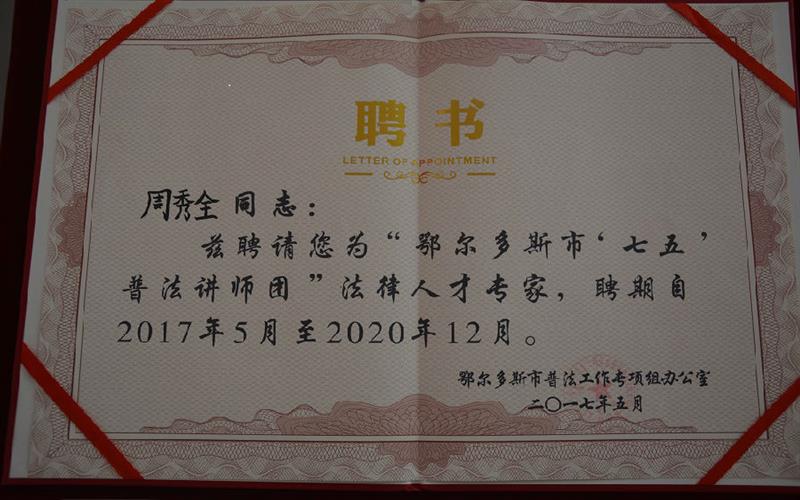 聘书
LETTER OF APPOINTMENT
周秀全同志：
兹聘请您为“鄂尔多斯市‘七五’
普法讲师团”法律人才专家，聘期自
2017年5月至2020年12月。
鄂尔多斯市普法工作专项组办公室
二〇一七年五月